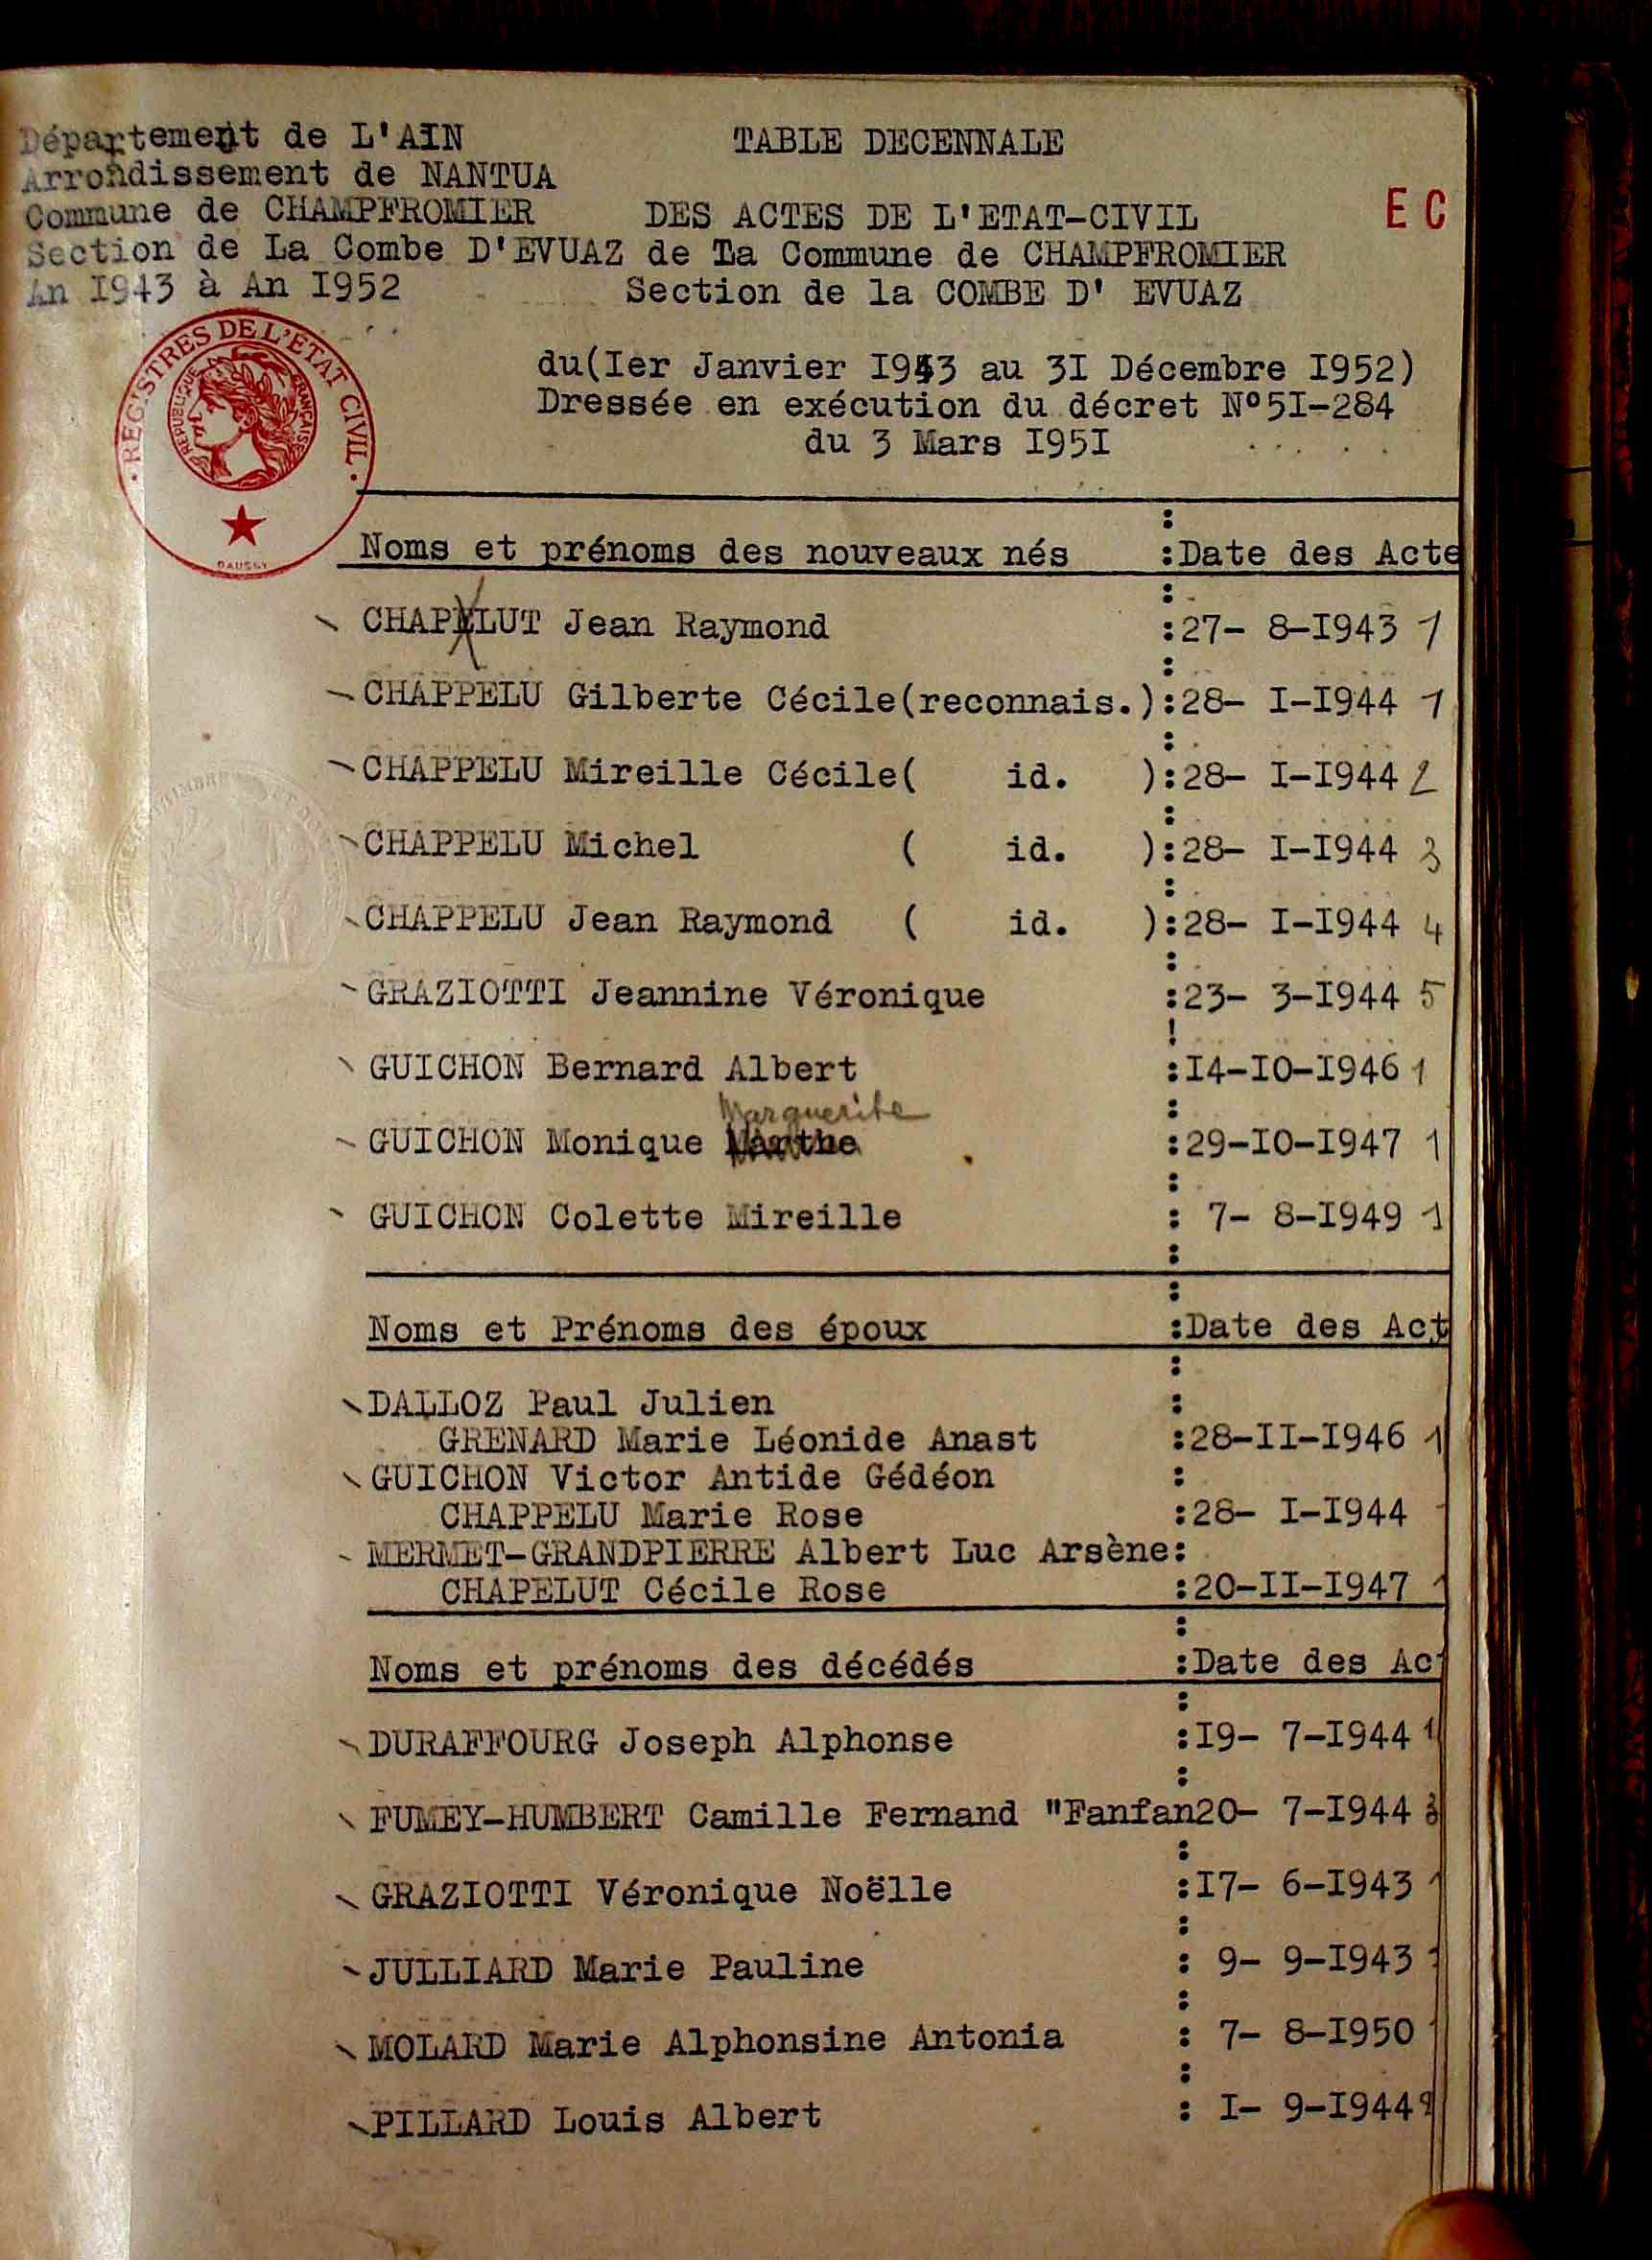 Département de L'AIN
TABLE DECENNALE
Arrondissement de NANTUA
Commune de CHAMPFROMIER
DES ACTES DE L'ETAT-CIVIL
E C
Section de La Combe D'EVUAZ de La Commune de CHAMPFROMIER
An I943 à An I952
Section de la COMBE D' EVUAZ
REGISTRES DE L'ETAT CIVIL
REPUBLIQUE FRANÇAISE
du(Ier Janvier I943 au 3I Décembre I952)
Dressée en exécution du décret N°5I-284
du 3 Mars I95I
Noms et prénoms des nouveaux nés :Date des Acte
CHAPELUT Jean Raymond :27- 8-I943 1
CHAPPELU Gilberte Cécile(reconnais.):28- I-I944 1
CHAPPELU Mireille Cécile( id. ):28- I-I944 2
CHAPPELU Michel ( id. ):28- I-I944 3
CHAPPELU Jean Raymond ( id. ):28- I-I944 4
GRAZIOTTI Jeannine Véronique :23- 3-I944 5
GUICHON Bernard Albert :I4-IO-I946 1
Marguerite
GUICHON Monique Marthe :29-IO-I947 1
GUICHON Colette Mireille : 7- 8-I949 1
Noms et Prénoms des époux :Date des Act
DALLOZ Paul Julien :
GRENARD Marie Léonide Anast :28-II-I946 1
GUICHON Victor Antide Gédéon :
CHAPPELU Marie Rose :28- I-I944
MERMET-GRANDPIERRE Albert Luc Arsène:
CHAPELUT Cécile Rose :20-II-I947 1
Noms et prénoms des décédés :Date des Ac
DURAFFOURG Joseph Alphonse :I9- 7-I944 1
FUMEY-HUMBERT Camille Fernand "Fanfan20- 7-I944 3
GRAZIOTTI Véronique Noëlle :I7- 6-I943 1
JULLIARD Marie Pauline : 9- 9-I943
MOLARD Marie Alphonsine Antonia : 7- 8-I950 1
PILLARD Louis Albert : I- 9-I944